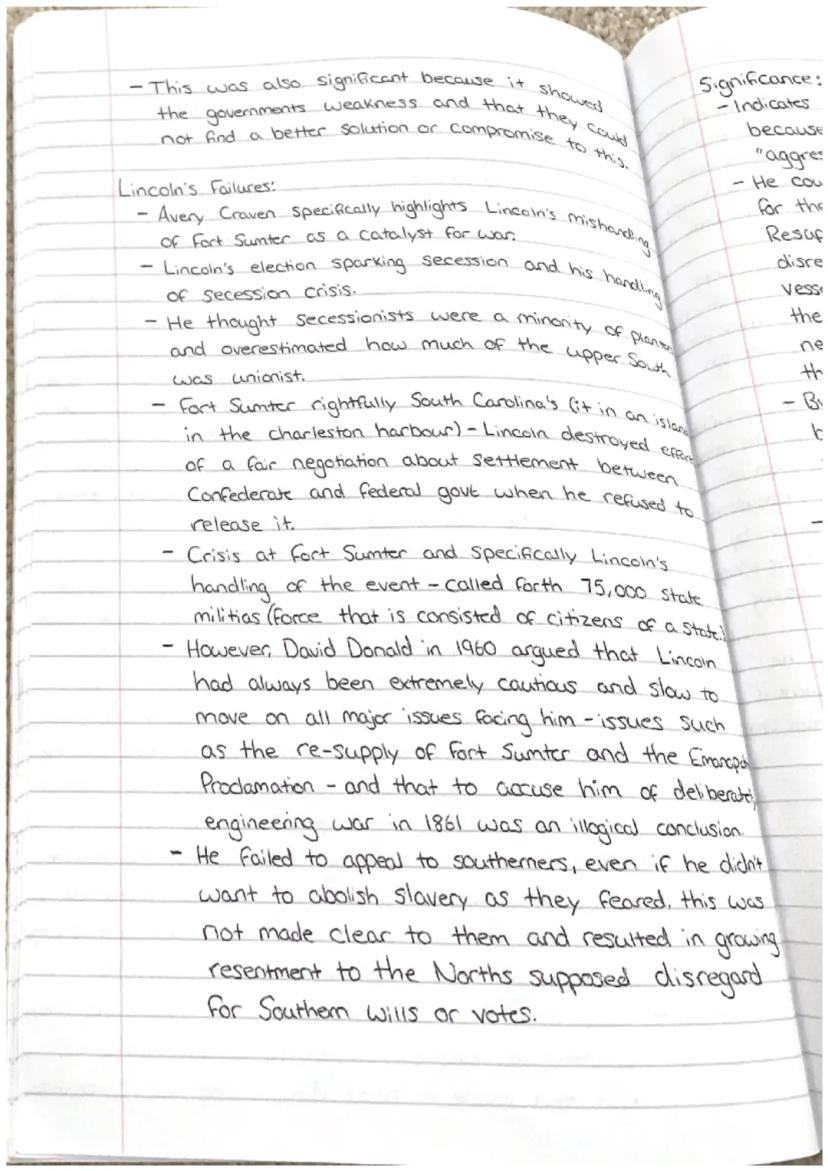 - This was also significant because it showed
the governments weakness and that they could
not find a better solution or compromise to this.
Lincoln's Failures:
- Avery Craven specifically highlights Lincoln's mishandling
of Fort Sumter as a catalyst for war.
- Lincoln's election sparking secession and his handling
of secession crisis.
- He thought secessionists were a minority of planters
and overestimated how much of the upper South
was unionist.
- Fort Sumter rightfully South Carolina's (it in an island
in the charleston harbour) - Lincoln destroyed effort
of a fair negotiation about settlement between
Confederate and federal govt when he refused to
release it.
- Crisis at Fort Sumter and specifically Lincoln's
handling of the event - called forth 75,000 state
militias (force that is consisted of citizens of a state)
- However, David Donald in 1960 argued that Lincoln
had always been extremely cautious and slow to
move on all major issues facing him - issues such
as the re-supply of Fort Sumter and the Emancpa
Proclamation - and that to accuse him of deliberate
engineering war in 1861 was an illogical conclusion.
- He failed to appeal to southerners, even if he didn't
want to abolish slavery as they feared, this was
not made clear to them and resulted in growing
resentment to the Norths supposed disregard
for Southern wills or votes.
Significance:
- Indicates
because
"aggres
- He cou
for the
Resup
disre
vess
the
ne
th
- B
b
-